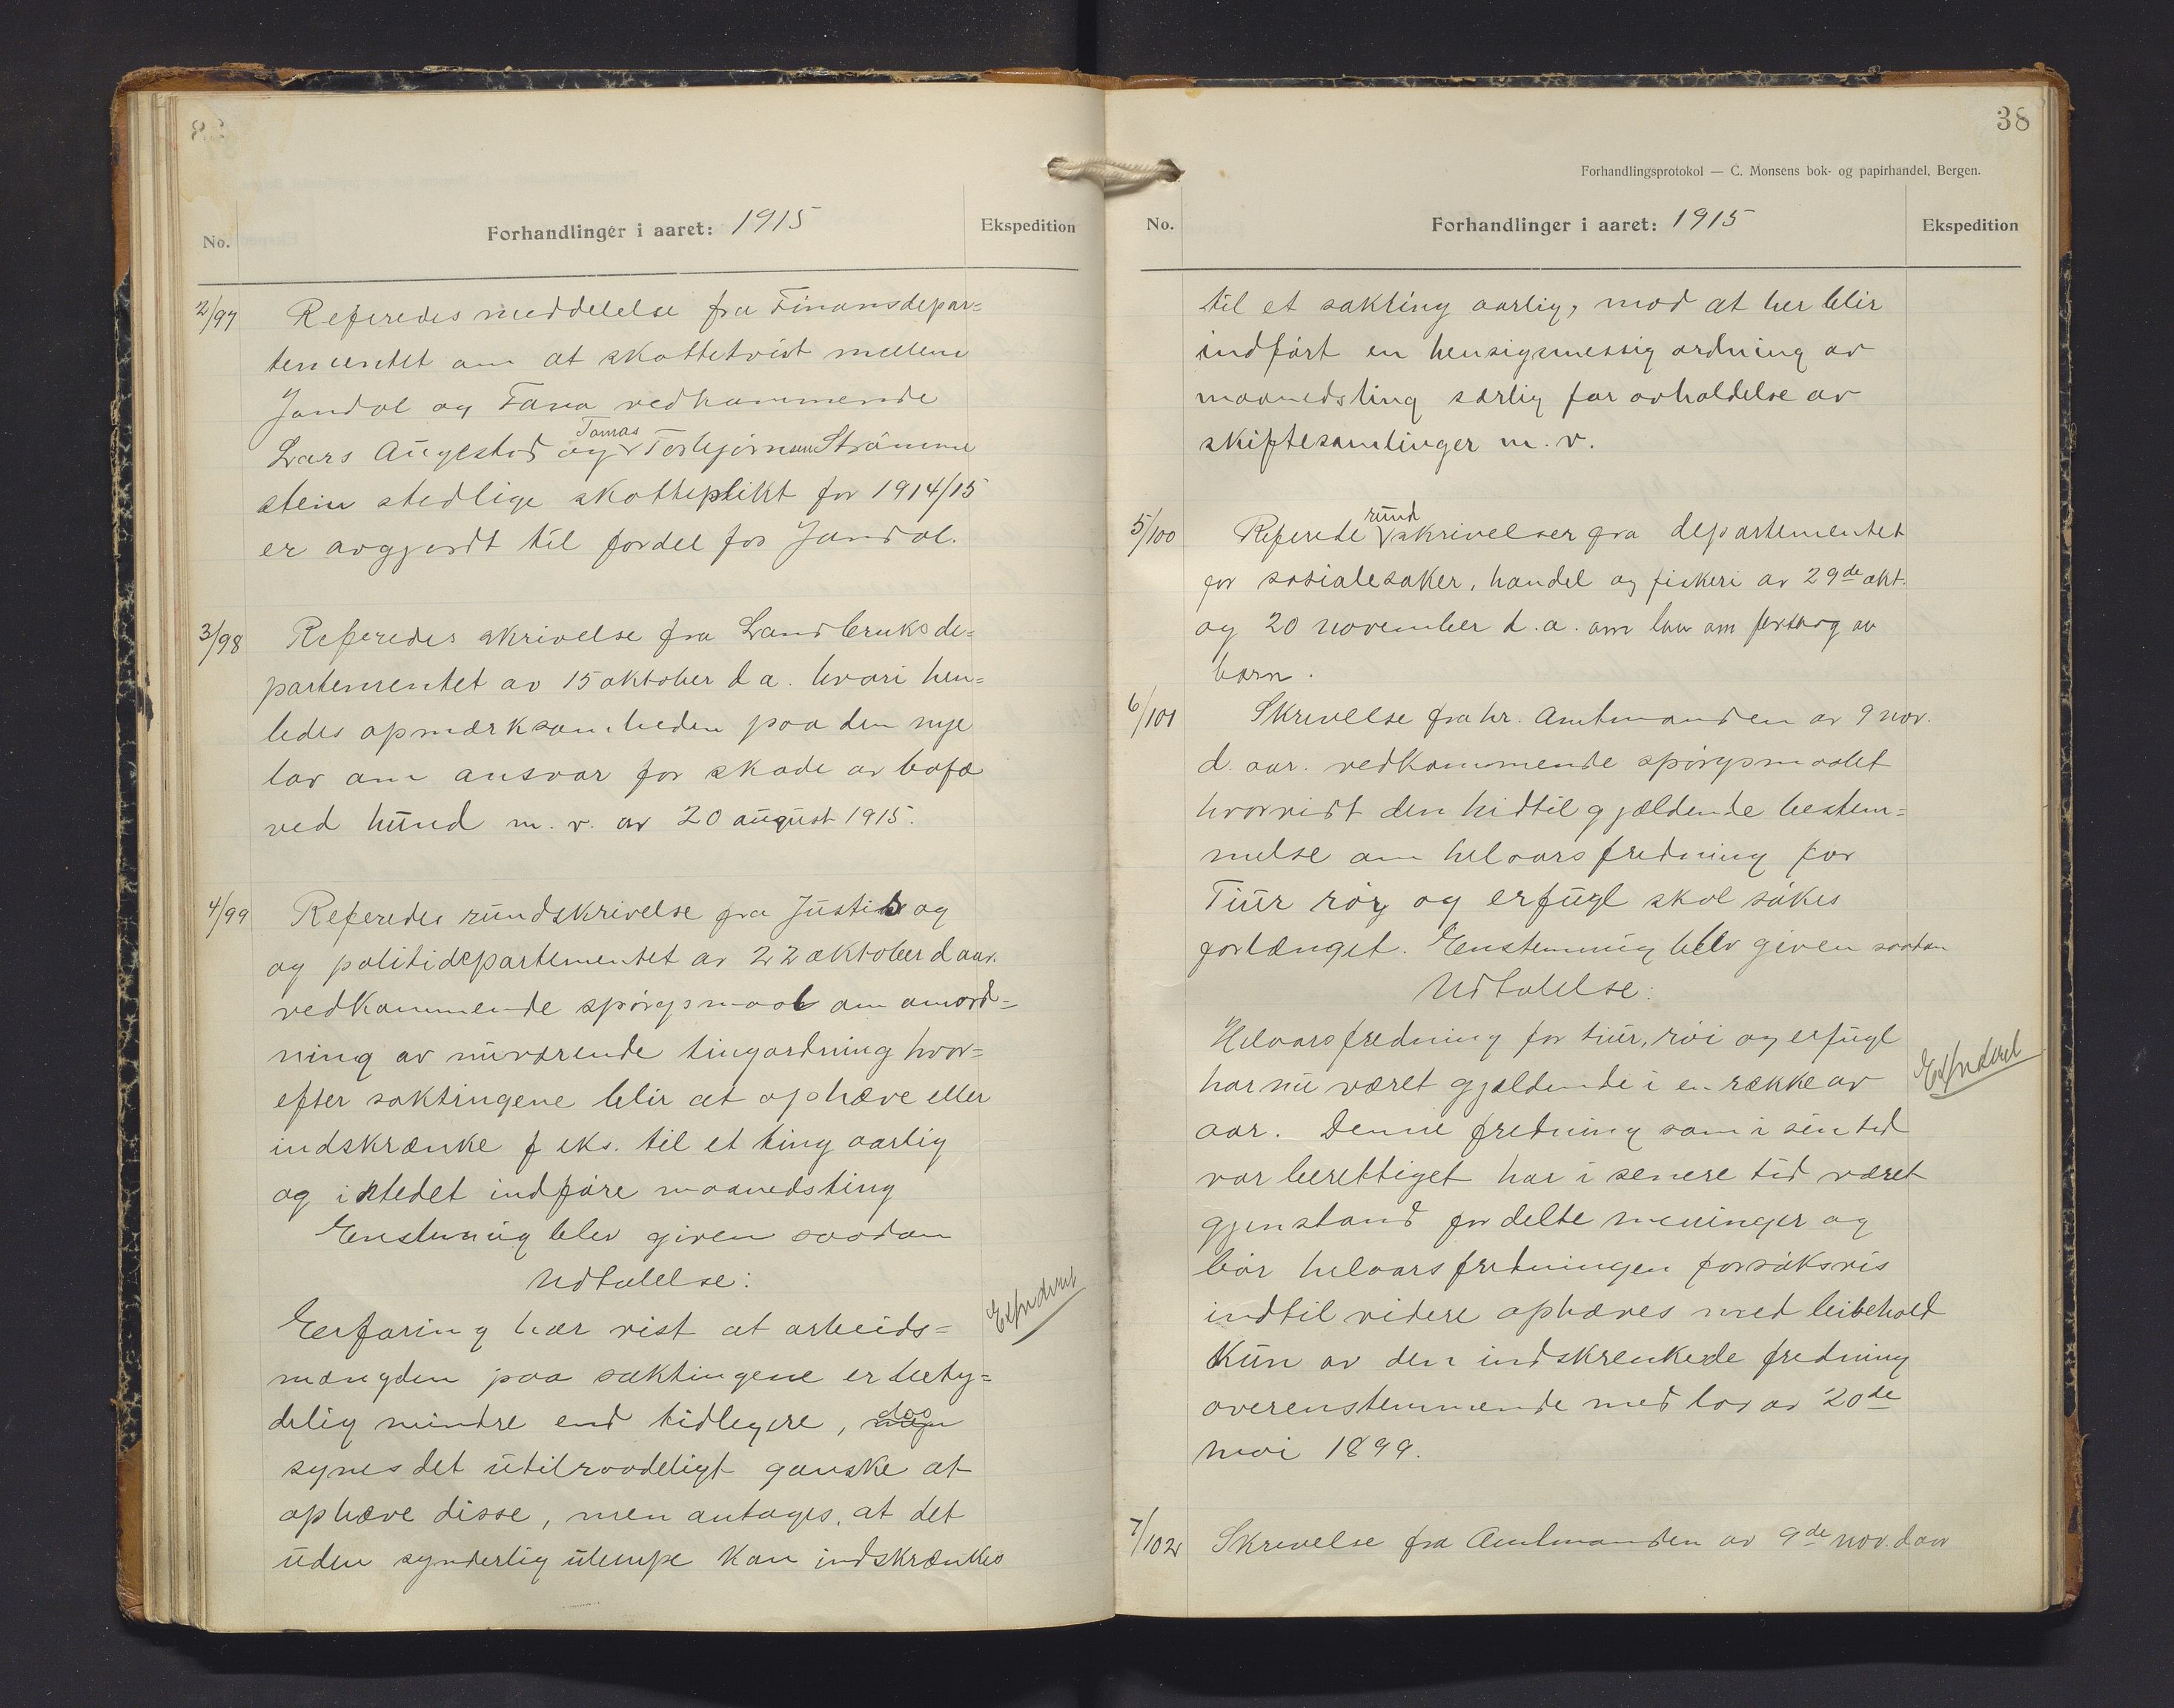 No.
Forhandlinger i aaret: 1915
Ekspedition
2/97 Referedes meddelelse fra Finansdepar=
tementet om at skattetvist mellem
Jondal og Fana vedkommende
Tomas
Lars Augestad og Torbjörnsen Strömme
stein stedlige skatteplikt for 1914/15
er avgjordt til fordel for Jondal.
3/98 Referedes skrivelse fra Landbruksde=
partementet av 15 oktober d a. hvori hen=
ledes opmærksomheden paa den nye
lov om ansvar for skade av bofæ
ved hund m. v. av 20 august 1915.
4/99 Referedes rundskrivelse fra Justis og
og politidepartementet av 22 oktober d aar.
vedkommende spörgsmaal om omord=
ning av nuværende tingordning hvor=
efter saktingene blir at ophæve eller
indskrænke f eks. til et ting aarlig
og istedet indföre maanedsting
Enstemmig blev given saadan
Udtalelse:
Erfaring har vist at arbeids=
mængden paa saktingene er bety=
delig mindre end tidlegere, dog
synes det utilraadeligt ganske at
ophæve disse, men antages, at det
uden synderlig ulempe kan indskrænkes
Expederet
38
Forhandlingsprotokol — C. Monsens bok- og papirhandel, Bergen.
No.
Forhandlinger i aaret: 1915
Ekspedition
til et sakting aarlig, mod at her blir
indfört en hensigsmessig ordning av
maanedsting særlig for avholdelse av
skiftesamlinger m. v.
rund
5/100 Referede skrivelser fra departementet
for sosialesaker, handel og fiskeri av 29de okt.
og 20 november d. a. om lov om forsorg av
barn.
6/101 Skrivelse fra hr. Amtmanden av 9 nov.
d. aar. vedkommende spörgsmaalet
hvorvidt den hidtil gjældende bestem=
melse om helaarsfredning for
Tiur röy og erfugl skal sökes
forlænget. Enstemmig blev given saadan
Udtalelse:
Helaarsfredning for tiur, röi og erfugl
har nu været gjeldende i en række av
aar. Denne fredning som i sin tid
var berettiget har i senere tid været
gjenstand for delte meninger og
bör helaarsfredningen forsöksvis
indtil videre ophæves med beibehold
kun av den indskrenkede fredning
overenstemmende med lov av 20de
mai 1899.
Expederet
7/102 Skrivelse fra Amtmanden av 9de nov. d aar